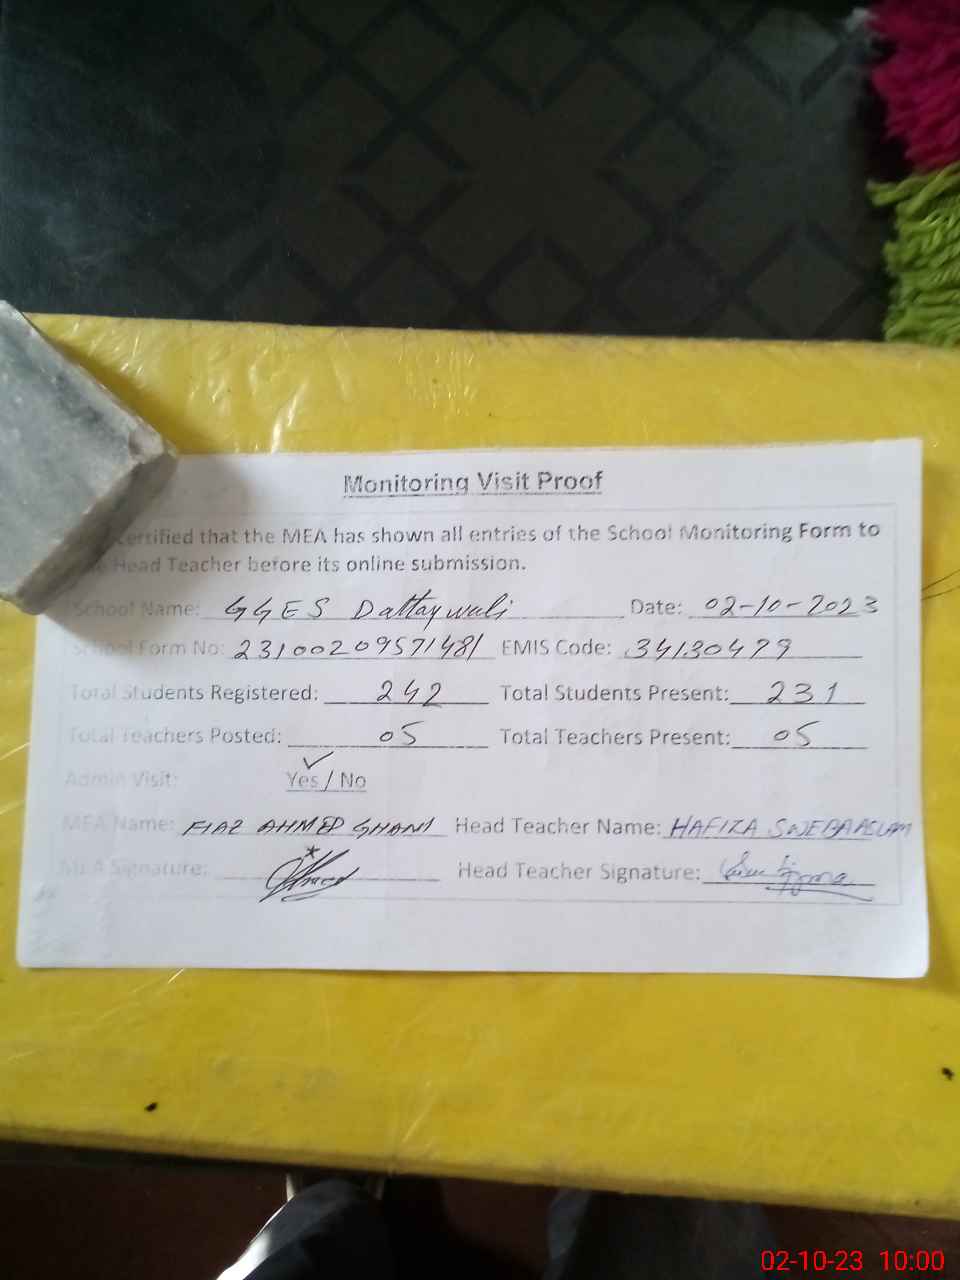 Monitoring Visit Proof
certified that the MEA has shown all entries of the School Monitoring Form to
Head Teacher before its online submission.
School Name: GGES Dattaywali Date: 02-10-2023
School Form No: 23100209571481 EMIS Code: 34130479
Total Students Registered: 242 Total Students Present: 231
Total Teachers Posted: 05 Total Teachers Present: 05
Admin Visit: Yes / No
MEA Name: FIAZ AHMED GHANI Head Teacher Name: HAFIZA SWEBA ASLAM
MEA Signature: Head Teacher Signature:
02-10-23 10:00